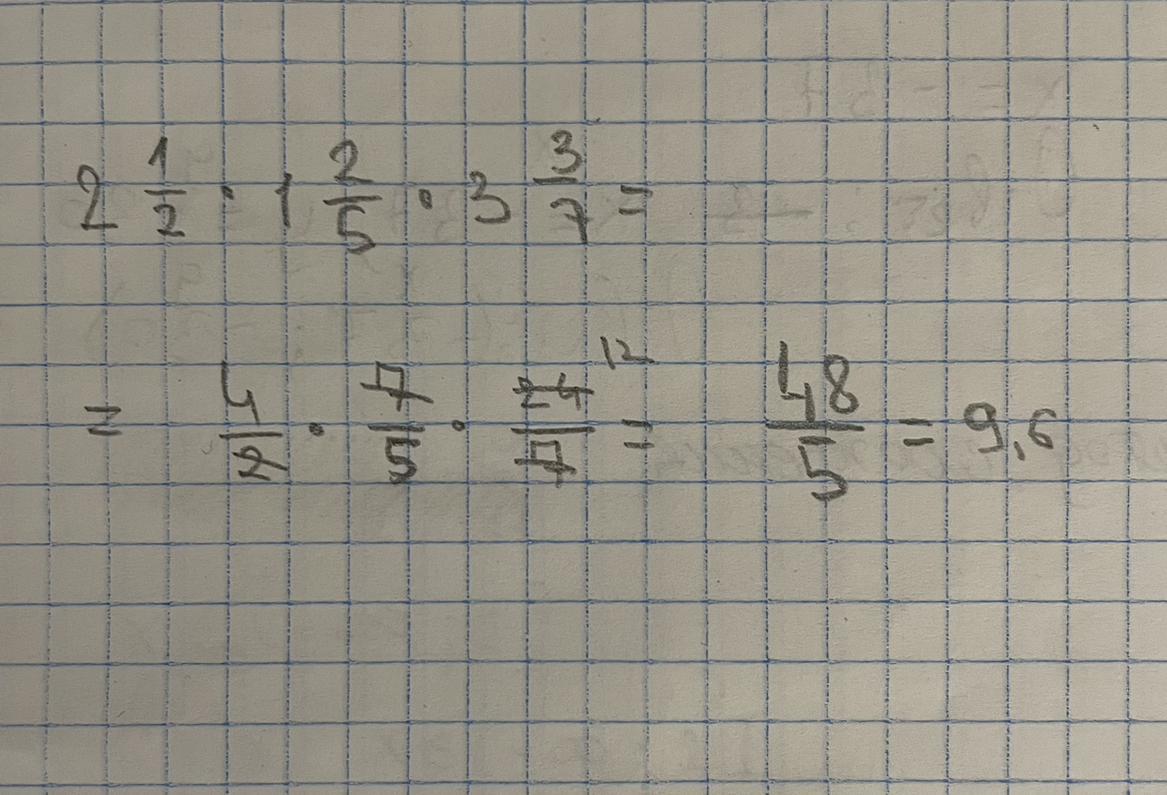 2 1/2 · 1 2/5 · 3 3/7 =
= 4/2 · 7/5 · 24/7 12 = 48/5 = 9,6